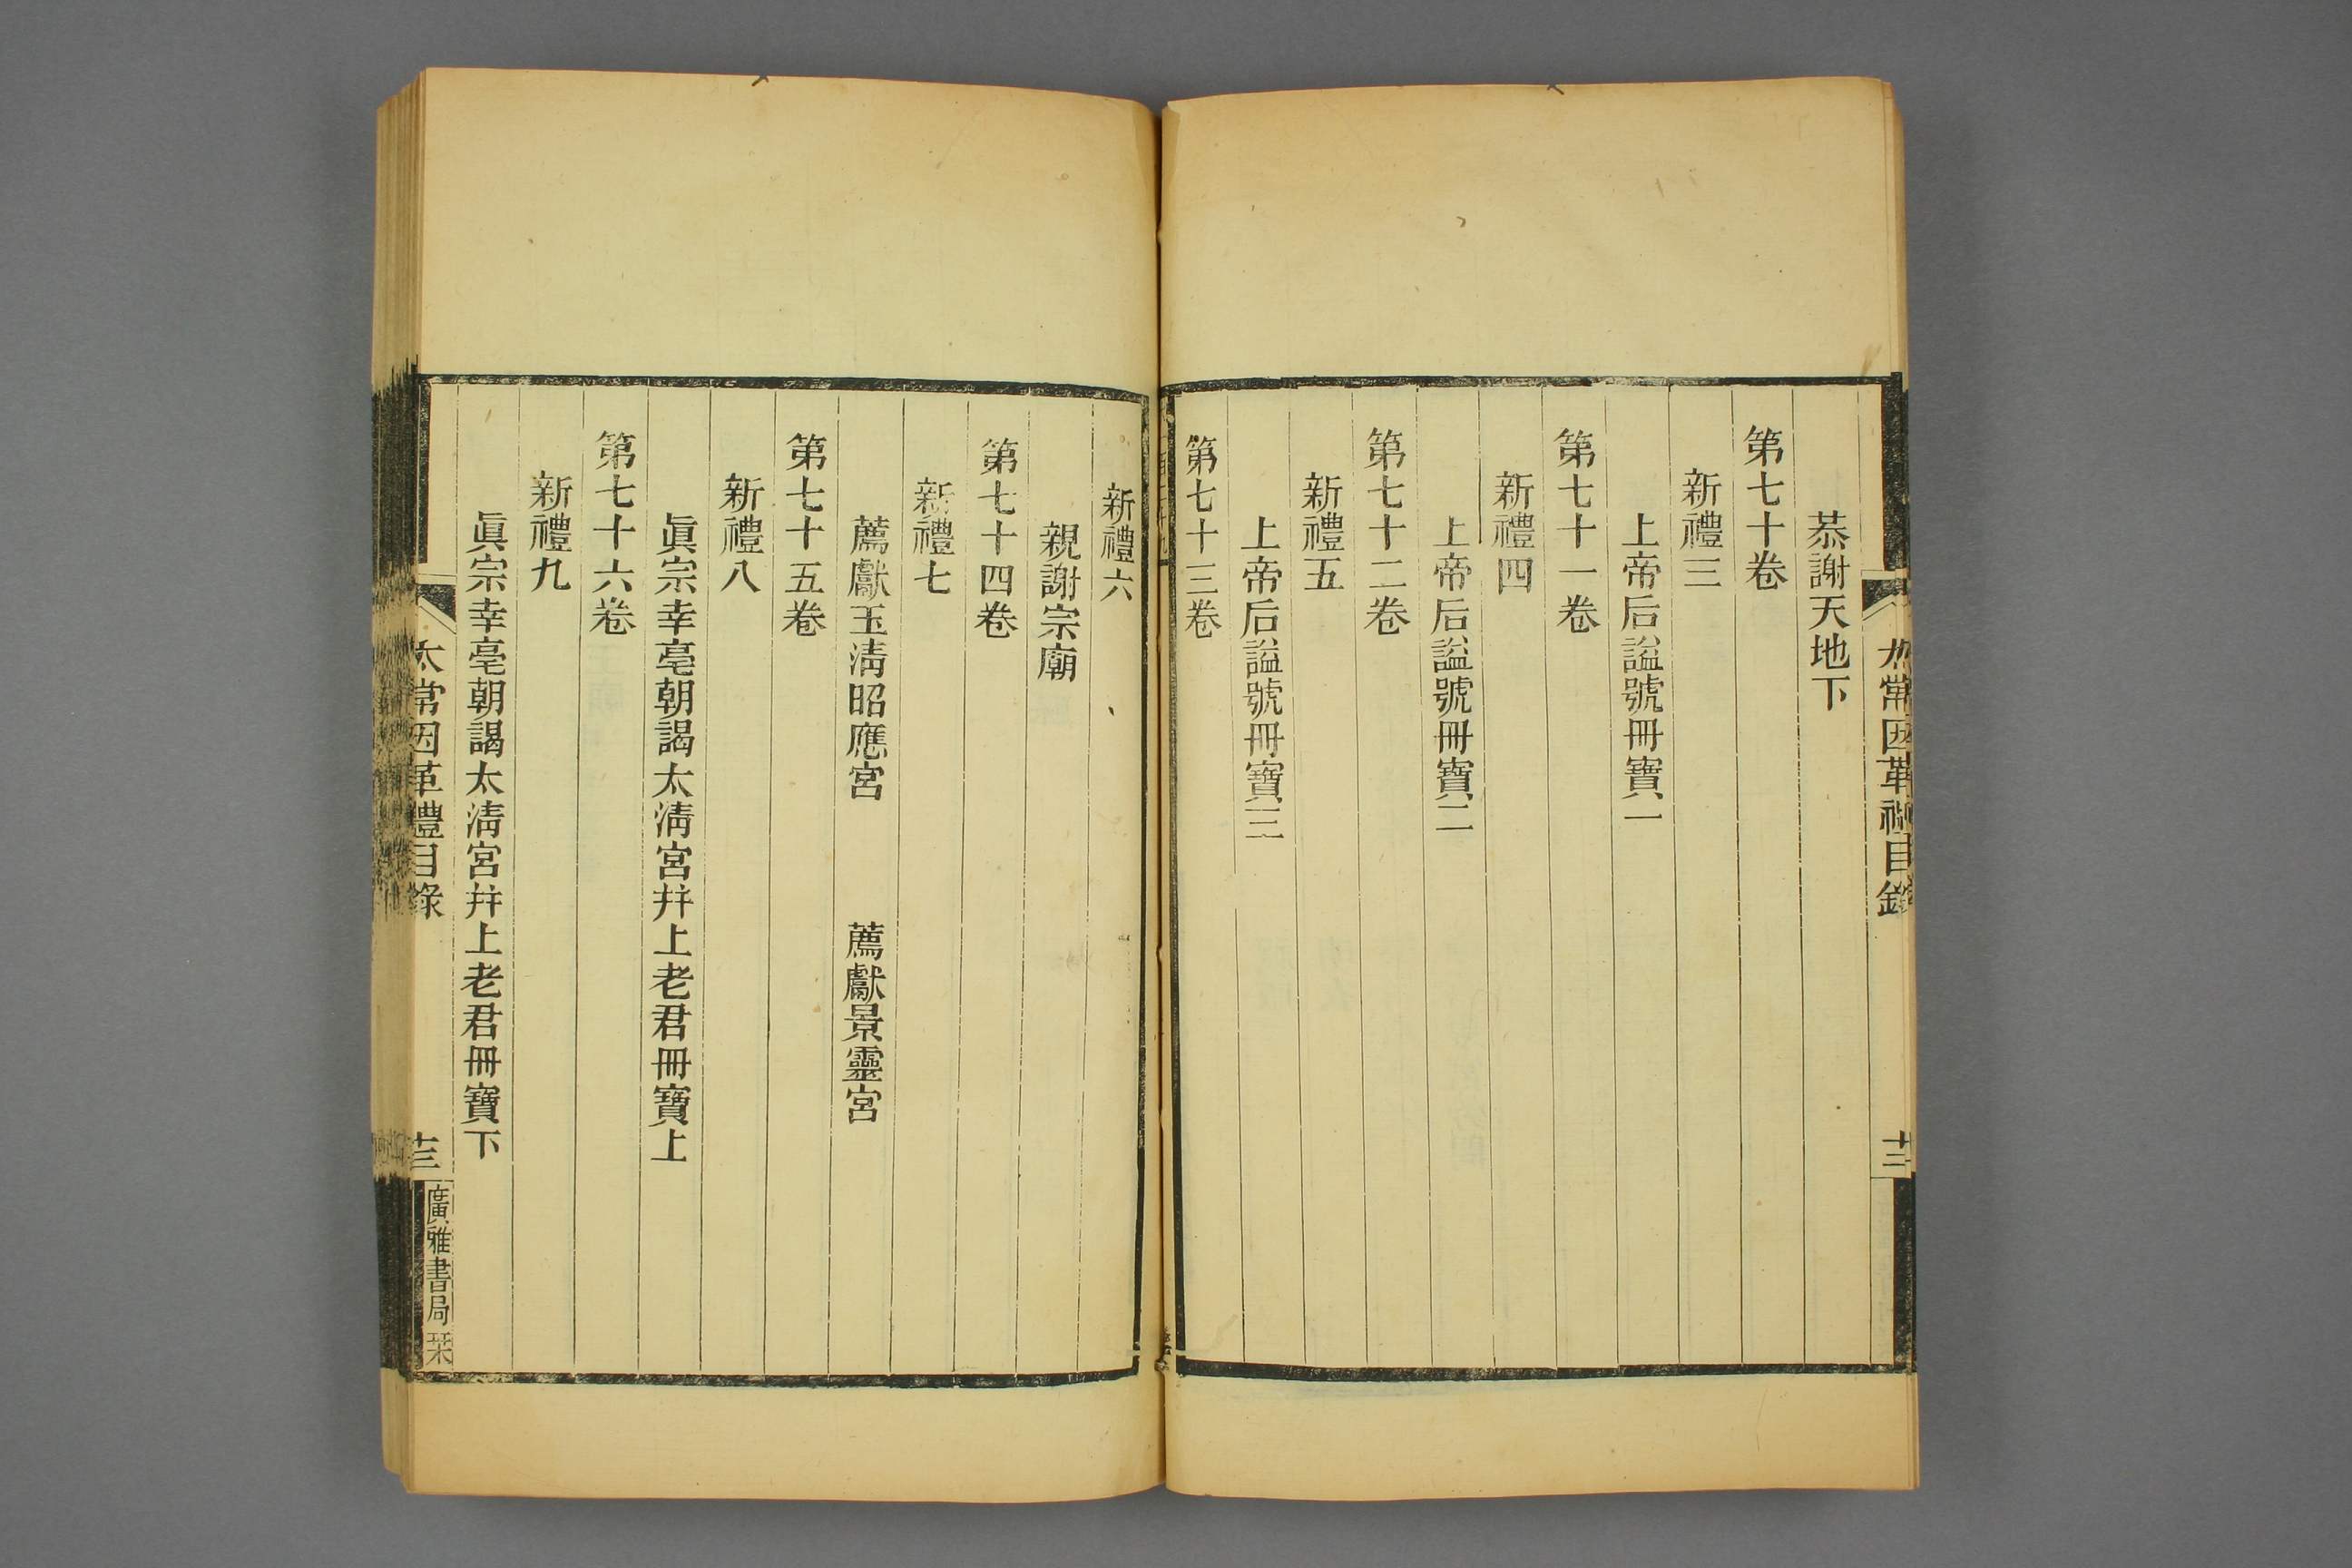 太常因革禮目錄
恭謝天地下
第七十卷
新禮三
上帝后謚號冊寶一
第七十一卷
新禮四
上帝后謚號冊寶二
第七十二卷
新禮五
上帝后謚號冊寶三
第七十三卷
新禮六
親謝宗廟
第七十四卷
新禮七
薦獻玉淸昭應宮　薦獻景靈宮
第七十五卷
新禮八
眞宗幸亳朝謁太淸宮幷上老君冊寶上
第七十六卷
新禮九
眞宗幸亳朝謁太淸宮幷上老君冊寶下
太常因革禮目錄
十三
廣雅書局栞